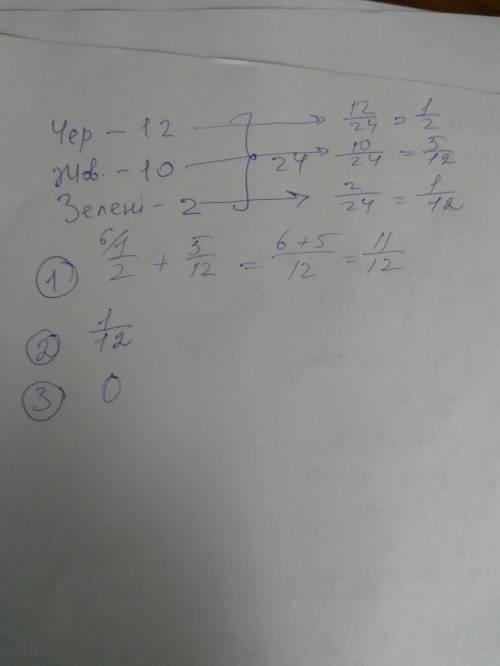 Чер – 12 → 12/24 = 1/2
Жов. – 10 → 24 → 10/24 = 5/12
Зелені – 2 → 2/24 = 1/12
① 6/ 1/2 + 5/12 = 6+5/12 = 11/12
② 1/12
③ 0